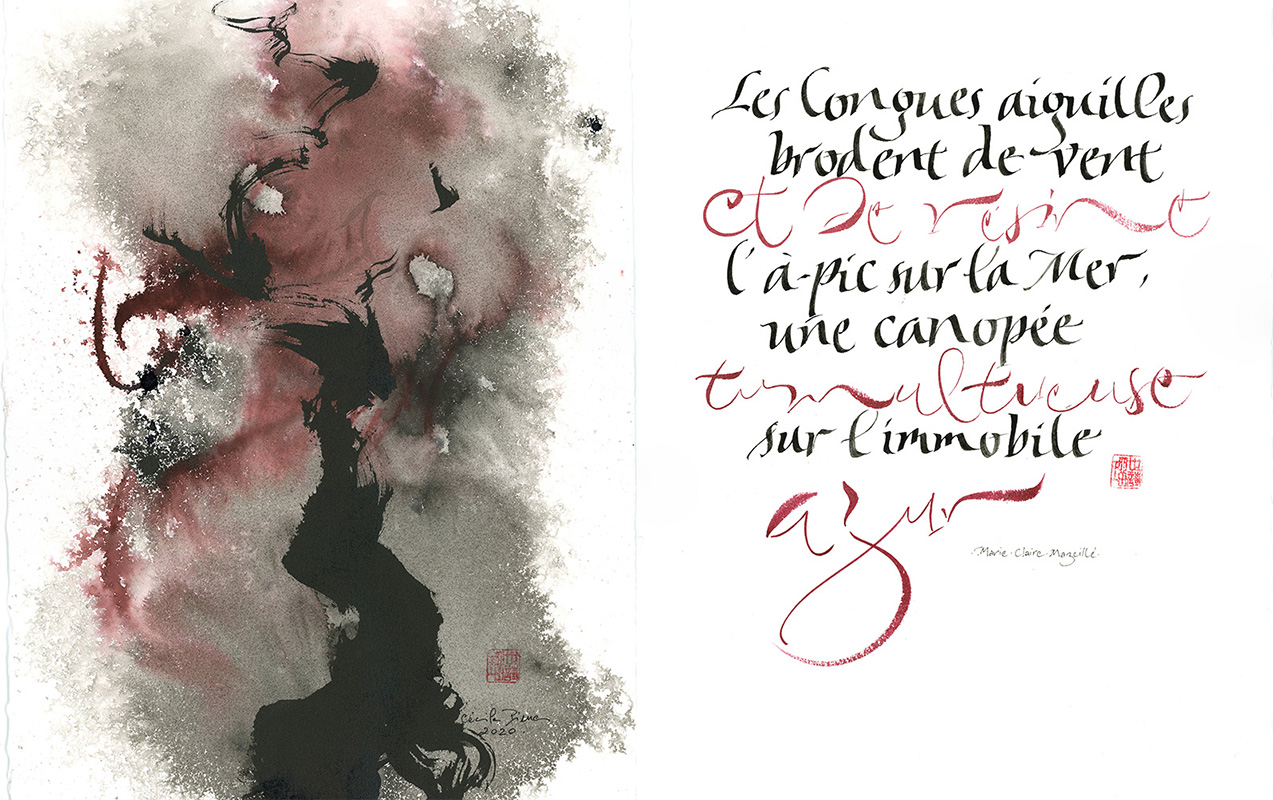 Les longues aiguilles
brodent de vent
et de résine
l'à-pic sur la Mer,
une canopée
tumultueuse
sur l'immobile
azur
Marie · Claire · Mazeillé ·
2020